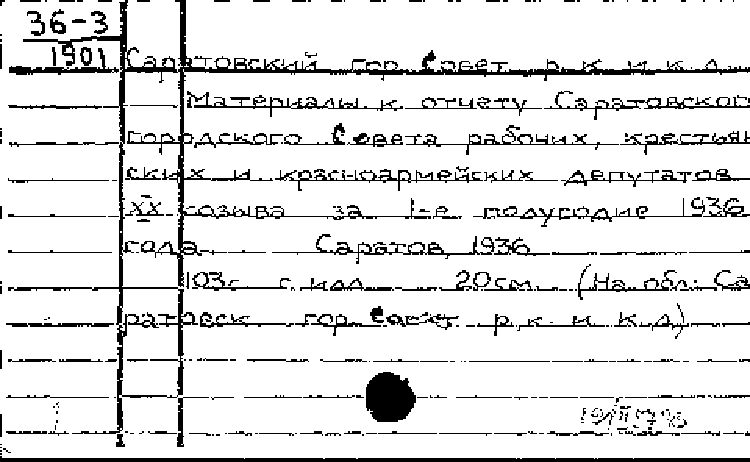 36-3
1901
Саратовский гор. Совет р. к. и к. д.
Материалы к отчету Саратовског
городского Совета рабочих, крестьян
ских и красноармейских депутатов
XX созыва за 1-е полугодие 1936
года. Саратов, 1936
103с. с илл. 20см. (На обл: Са
ратовск. гор. Совет р. к. и к. д)